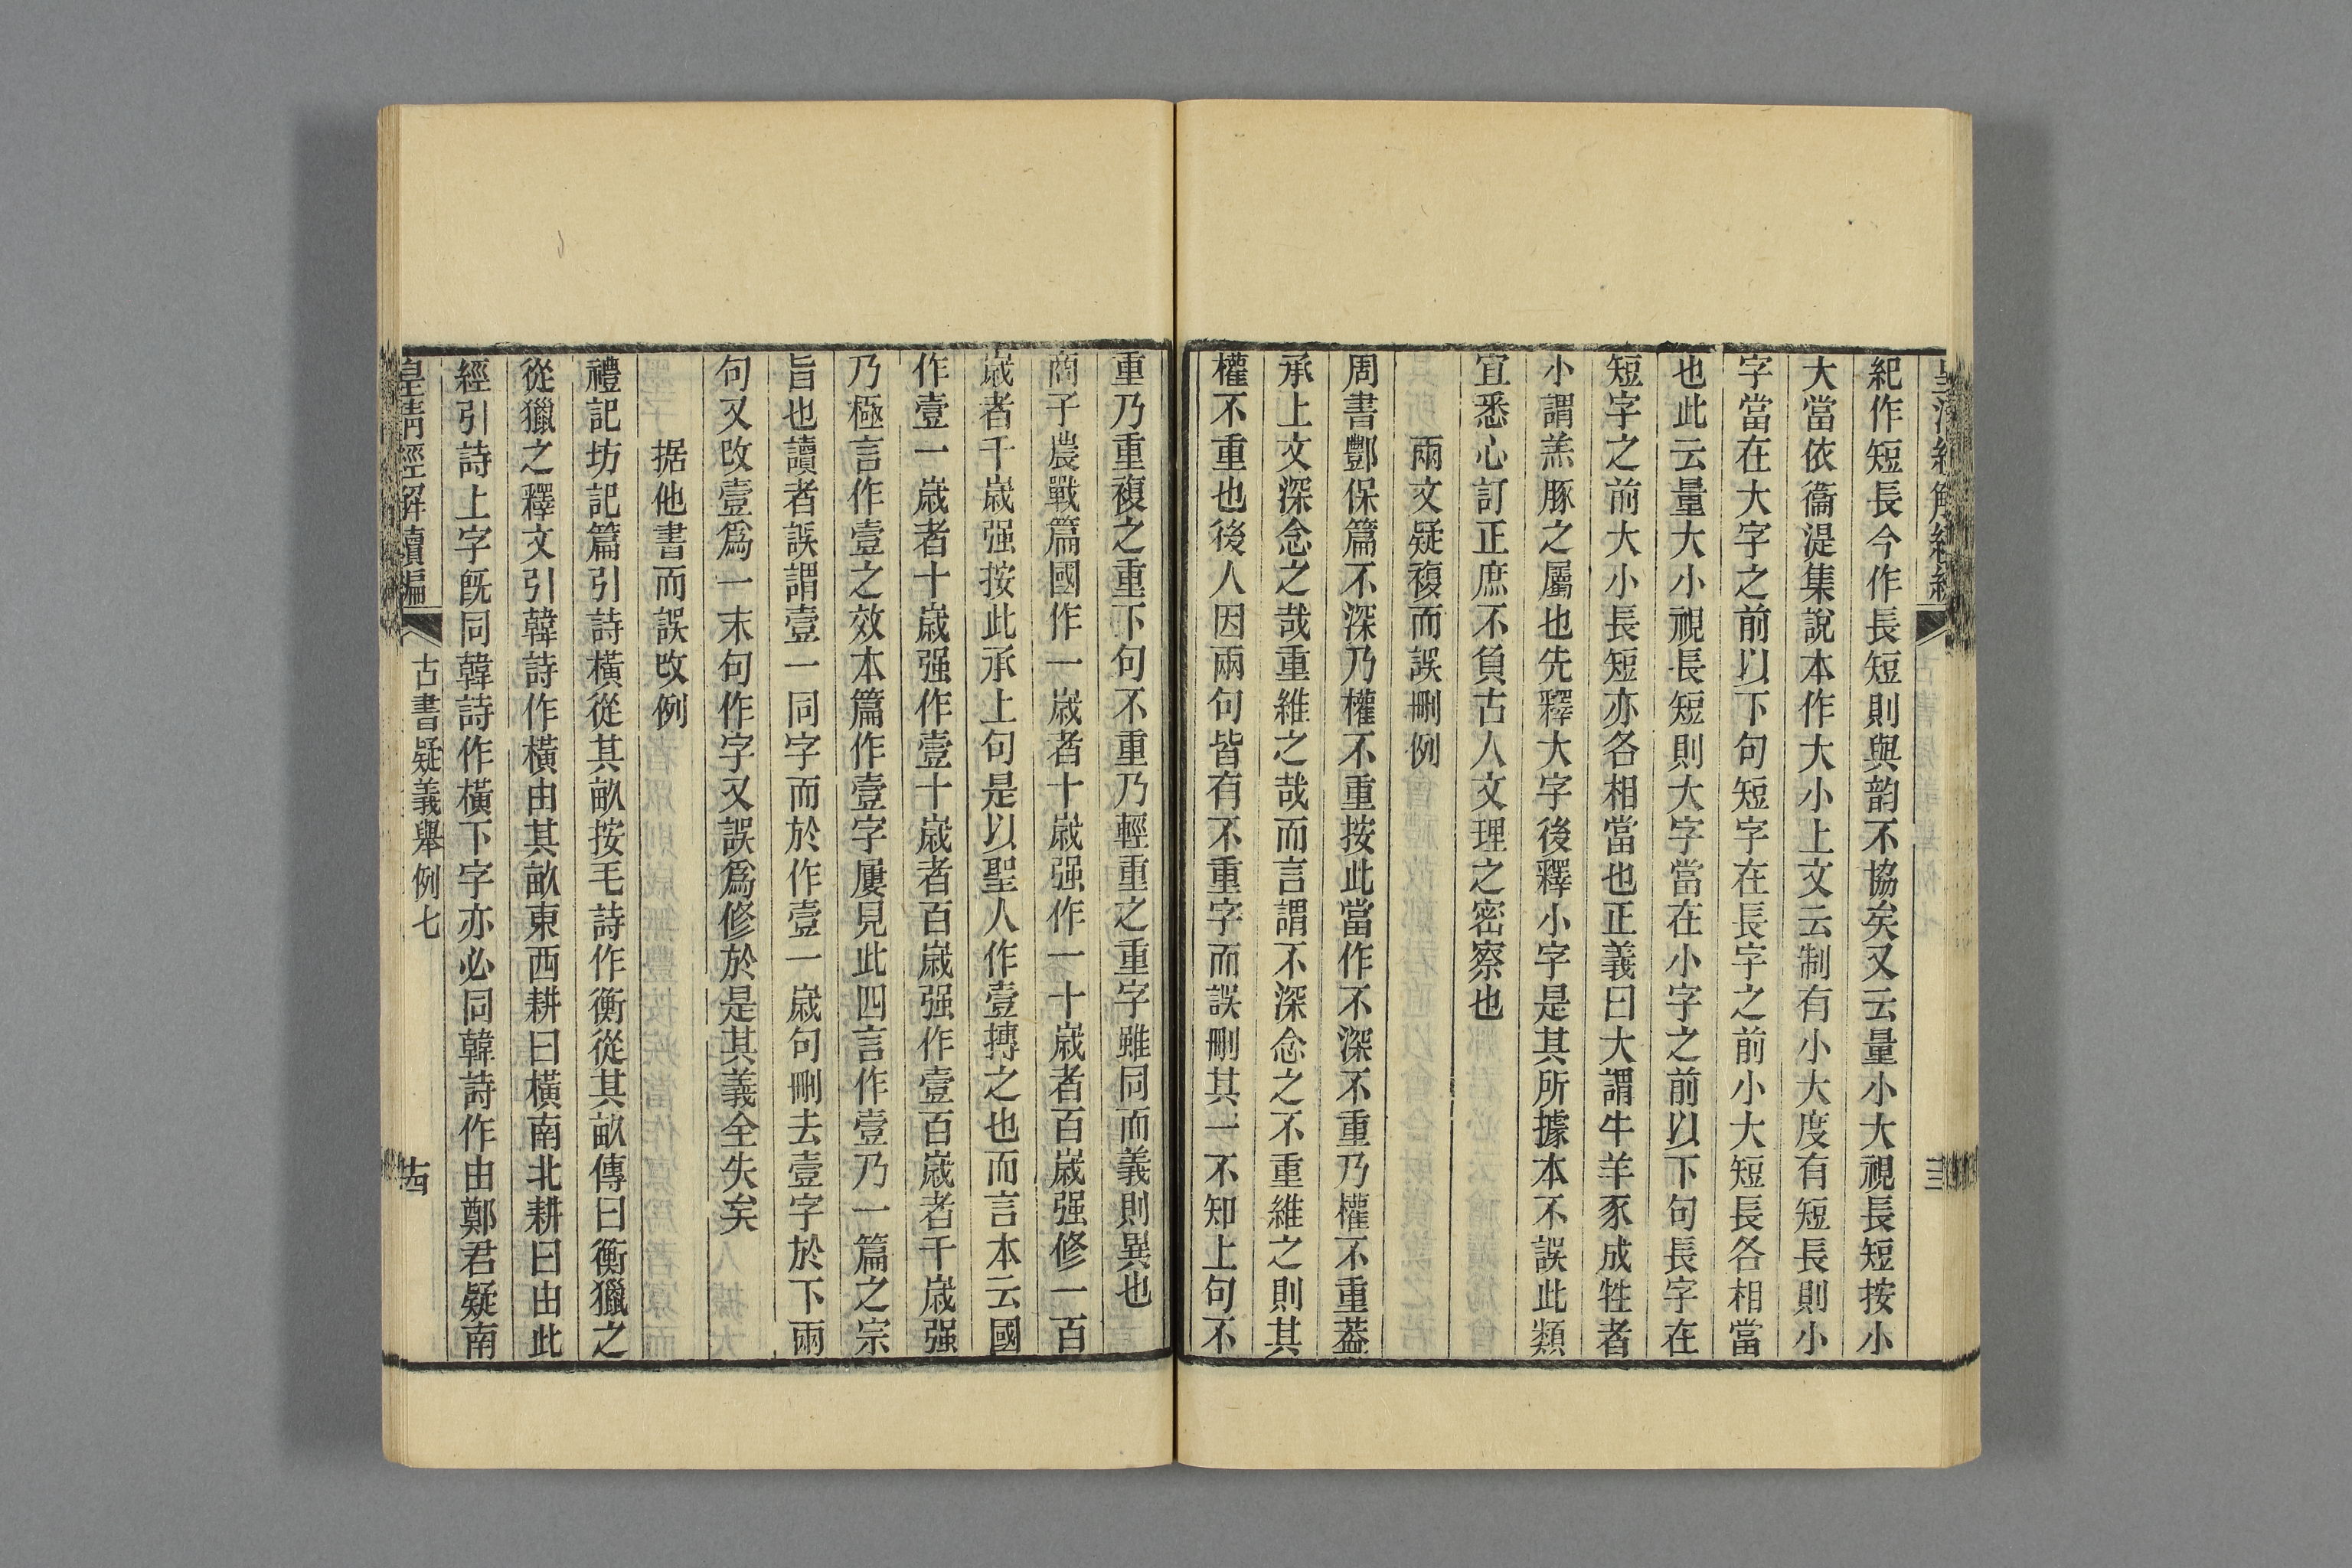 紀作短長今作長短則與韵不協矣又云量小大視長短按小
大當依衞湜集說本作大小上文云制有小大度有短長則小
字當在大字之前以下句短字在長字之前小大短長各相當
也此云量大小視長短則大字當在小字之前以下句長字在
短字之前大小長短亦各相當也正義曰大謂牛羊豕成牲者
小謂羔豚之屬也先釋大字後釋小字是其所據本不誤此類
宜悉心訂正庶不負古人文理之密察也
兩文疑複而誤刪例
周書酆保篇不深乃權不重按此當作不深不重乃權不重葢
承上文深念之哉重維之哉而言謂不深念之不重維之則其
權不重也後人因兩句皆有不重字而誤刪其一不知上句不
重乃重複之重下句不重乃輕重之重字雖同而義則異也
商子農戰篇國作一歲者十歲强作一十歲者百歲强修一百
歲者千歲强按此承上句是以聖人作壹摶之也而言本云國
作壹一歲者十歲强作壹十歲者百歲强作壹百歲者千歲强
乃極言作壹之效本篇作壹字屢見此四言作壹乃一篇之宗
旨也讀者誤謂壹一同字而於作壹一歲句刪去壹字於下兩
句又改壹爲一末句作字又誤爲修於是其義全失矣
据他書而誤改例
禮記坊記篇引詩橫從其畝按毛詩作衡從其畝傳曰衡獵之
從獵之釋文引韓詩作橫由其畝東西耕曰橫南北耕曰由此
經引詩上字旣同韓詩作橫下字亦必同韓詩作由鄭君疑南
皇淸經解續編
古書疑義舉例七
十四